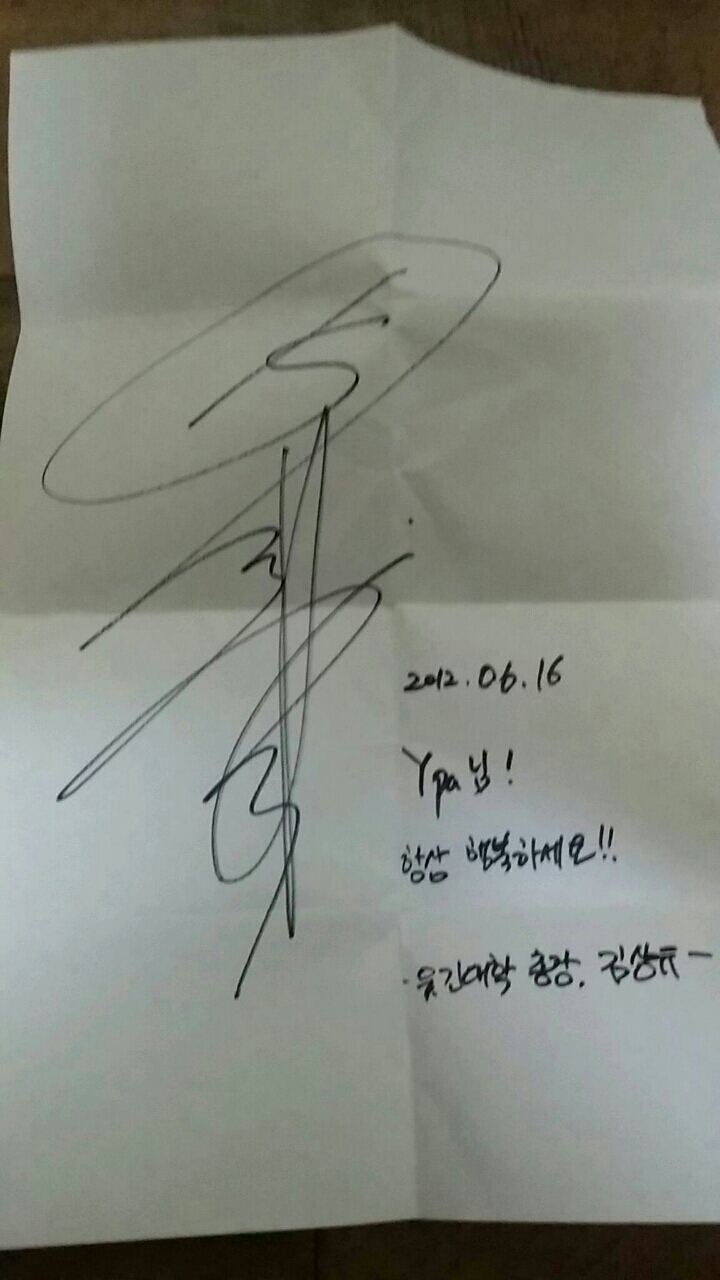 2012.06.16
Ypa님!
항상 행복하세요!!
·웃긴대학 총장, 김상유-